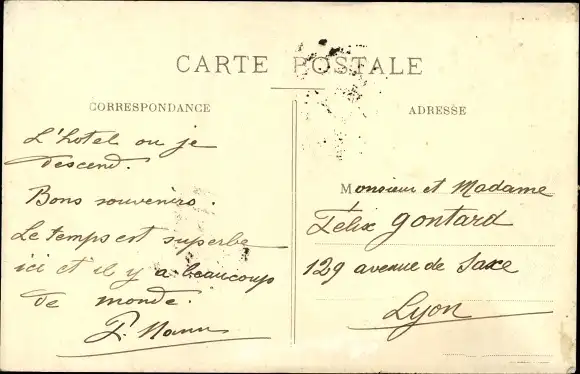 CARTE POSTALE
CORRESPONDANCE
L'hotel ou je
descend.
Bons souvenirs.
Le temps est superbe
ici et il y a beaucoup
de monde.
ADRESSE
Monsieur et Madame
Félix Gontard
129 avenue de Saxe
Lyon